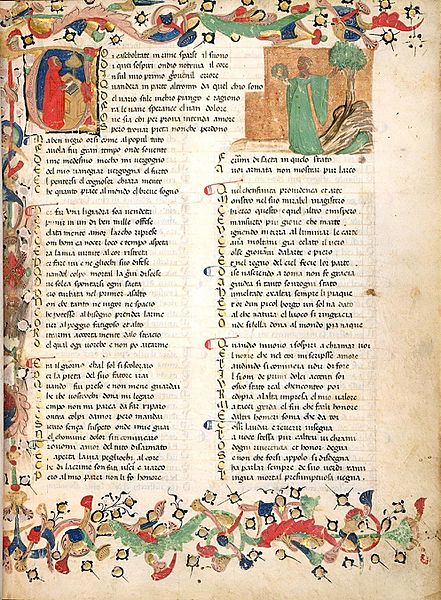 oi cascholtate in rime sparse il suono
Di quei sospiri ondio nutriva il core
In sul mio primo giovenil errore
Quandera in parte altruom da quel chio sono
Del vario stile inchio piango e ragiono
Fra le vane speranze el van dolore
Ove sia chi per prova intenda amore
Spero trovar pieta nonche perdono
Ma ben veggio or si come al popul tutto
Favola fui gran tempo onde sovente
Di me medesmo mecho mi vergogno
Et del mio vaneggiar vergogna el frutto
El pentersi el cognoscer chiara mente
Che quanto piace al mondo e breve sogno
Per far una ligiadra sua vendetta
Et punir in un di ben mille offese
Celata mente amor larcho riprese
Come om ca nocer loco e tempo aspetta
Era la mia virtute al cor ristretta
Per far ivi e ne gliocchi sue difese
Quandol colpo mortal la giu discese
Ove solea spontarsi ogni saetta
Pero turbata nel primier assalto
Non ebbe tanto ne vigor ne spacio
Che potesse al bisogno prender larme
O vero al poggio faticoso et alto
Ritrarmi accorta mente dalo stracio
Del qual oggi vorebbe e non po aitarme
Era il giorno chal sol si scoloraro
Per la pieta del suo fatore i rai
Quando fui preso e non mene guardai
Che be vostrocchi dona mi legaro
Tempo non mi parea da far riparo
Contra colpi damor pero mandai
Securo senza suspeto onde i mie guai
Nel chomune dolor si comincaro
Trovomi amor del tuto disarmato
Et aperta la via per gliocchi al core
Che di lacrime son fati usci e varco
Pero al mio parer non li fo honore
Ferirmi di saeta in quelo stato
A voi armata non mostrar pur larco
Quel chenfinita providenca et arte
Mostro nel suo mirabel magistero
Che creo questo e quel altro emispero
E mansueto piu giove che marte
Vegnendo in terra al luminar le carte
Cavia molti anni gia celato il vero
Tolse giovani dalarte e piero
E nel regno del ciel fece lor parte
Di se nascendo a roma non fe gracia
A giudea si tanto sovrogni stato
Humeltate exaltar sempre li piaque
Et or dun picol borgo un sol na dato
Tal che natura el luocho si ringracia
Onde si bella dona al mondo naque
Quando io movo i sospiri a chiamar voi
El nome che nel cor mi scrisse amore
Laudando si comincia udir di fore
El son de primi dolci accenti soi
Vostro stato real chencontro poi
Radopia alalta impresa el mio valore
Ma taci grida el fin che farli honore
E daltri homeri soma che da toi
Cosi laudare e reverire insegna
La voce stessa pur caltri vi chiami
O dogni reverencia et honor degna
Se non che forsi appolo si disdegna
Cha parlar sempre de suoi verdi rami
Lingua mortal presumptuosa vegna